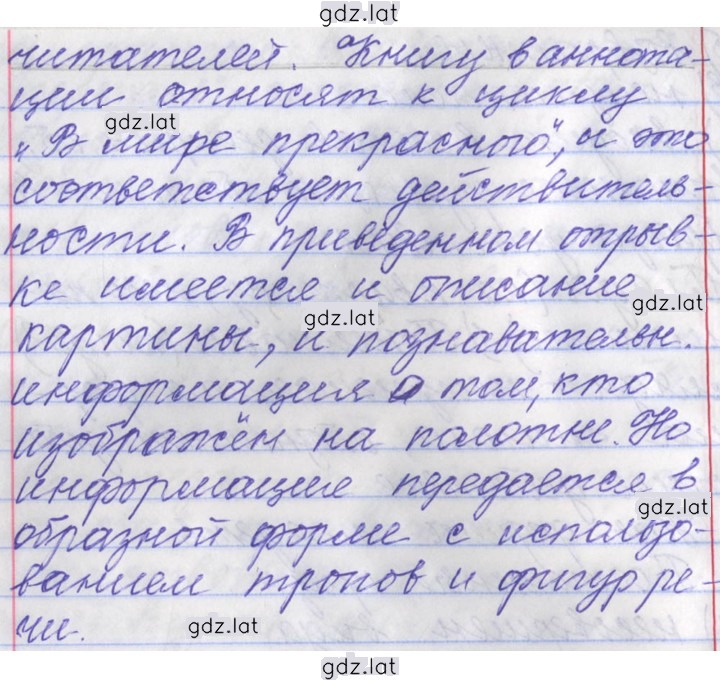 gdz.lat
читателей. Книгу в аннота-
ции относят к циклу
gdz.lat
„В мире прекрасного", и это
соответствует действитель-
ности. В приведенном отрыв-
ке имеется и описание
gdz.lat
gdz.lat
картины, и познавательн.
информация о том, кто
изображён на полотне. Но
информация передается в
gdz.lat
образной форме с использо-
ванием тропов и фигур ре-
чи.
gdz.lat
gdz.lat